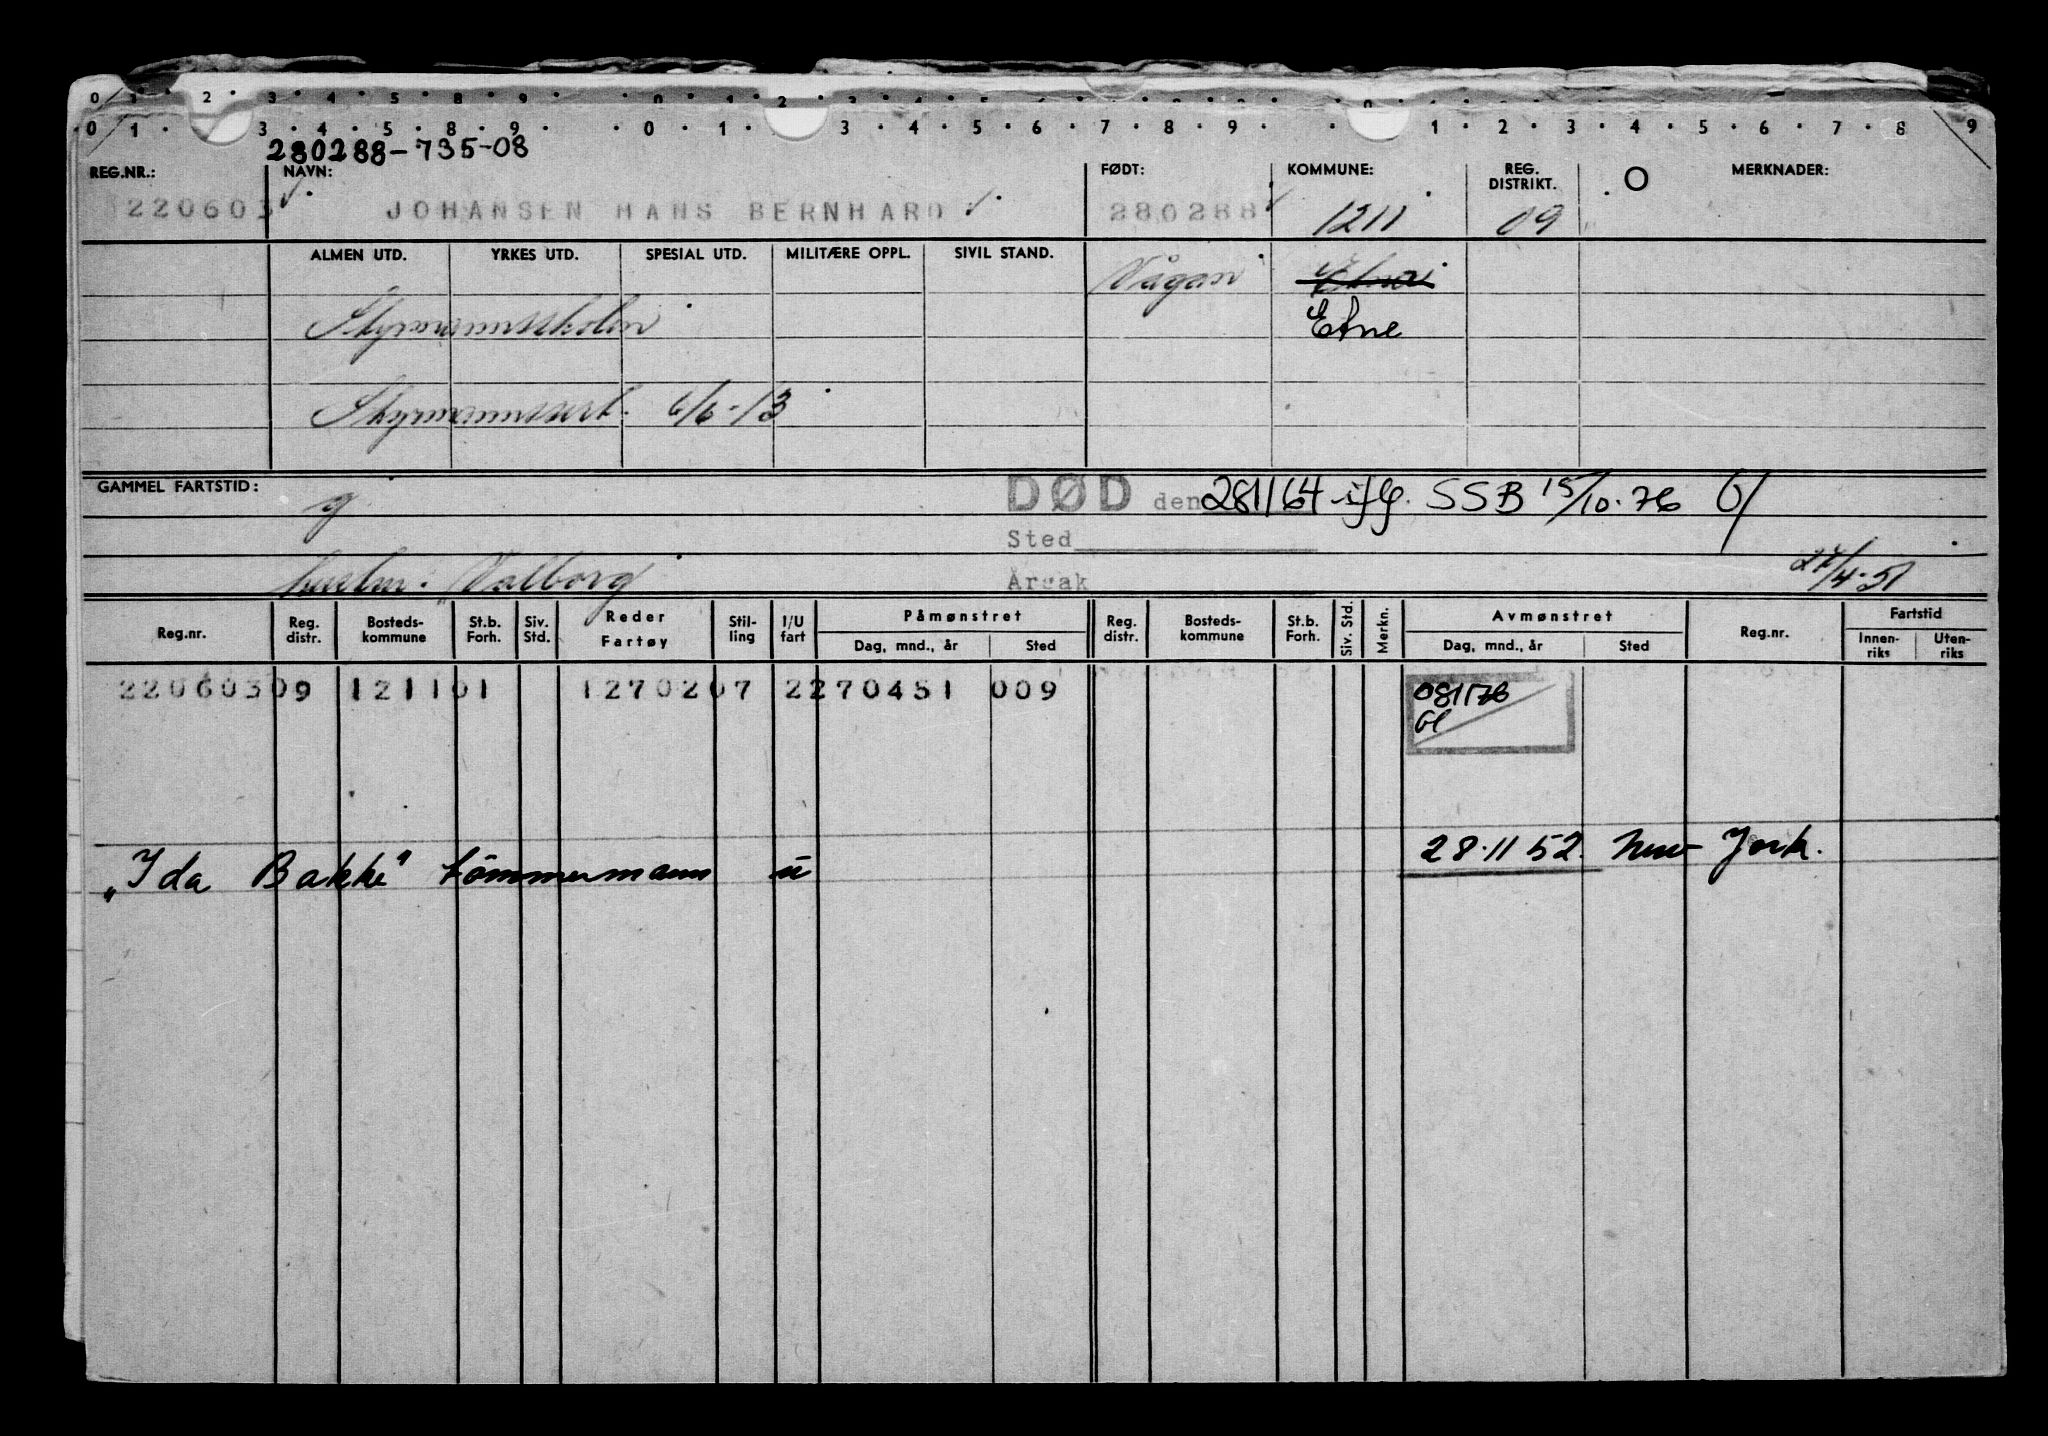 0 1 2 3 4 5 8 9 0 1 2 3 4 5 6 7 8 9 0
0 1 3 4 5 8 9 0 1 3 4 5 6 7 8 9 1 2 3 4 5 6 7 8 9
280288-735-08
REG.NR.: NAVN: FØDT: KOMMUNE: REG. DISTRIKT. O MERKNADER:
220603 JOHANSEN HANS BERNHARD 280288 1211 09
ALMEN UTD. YRKES UTD. SPESIAL UTD. MILITÆRE OPPL. SIVIL STAND. Vågan
Styrmannsskolen Etne
Styrmannssert. 6/6-13
GAMMEL FARTSTID: g DØD den 281164 iflg. SSB 15/10.76
Sted
hustru: "Valborg Årsak 27/4-51
Reg.nr. Reg. distr. Bosteds-kommune St.b. Forh. Siv. Std. Reder Fartøy Stil-ling I/U fart Påmønstret Dag, mnd., år Sted Reg. distr. Bosteds-kommune St.b. Forh. Siv. Std. Merkn. Avmønstret Dag, mnd., år Sted Reg.nr. Fartstid Innen-riks Uten-riks
220603 09 1211 01 127020 7 2 270451 009 081176
Gl
"Ida Bakke" tömmermann u 28.11 52. New York.